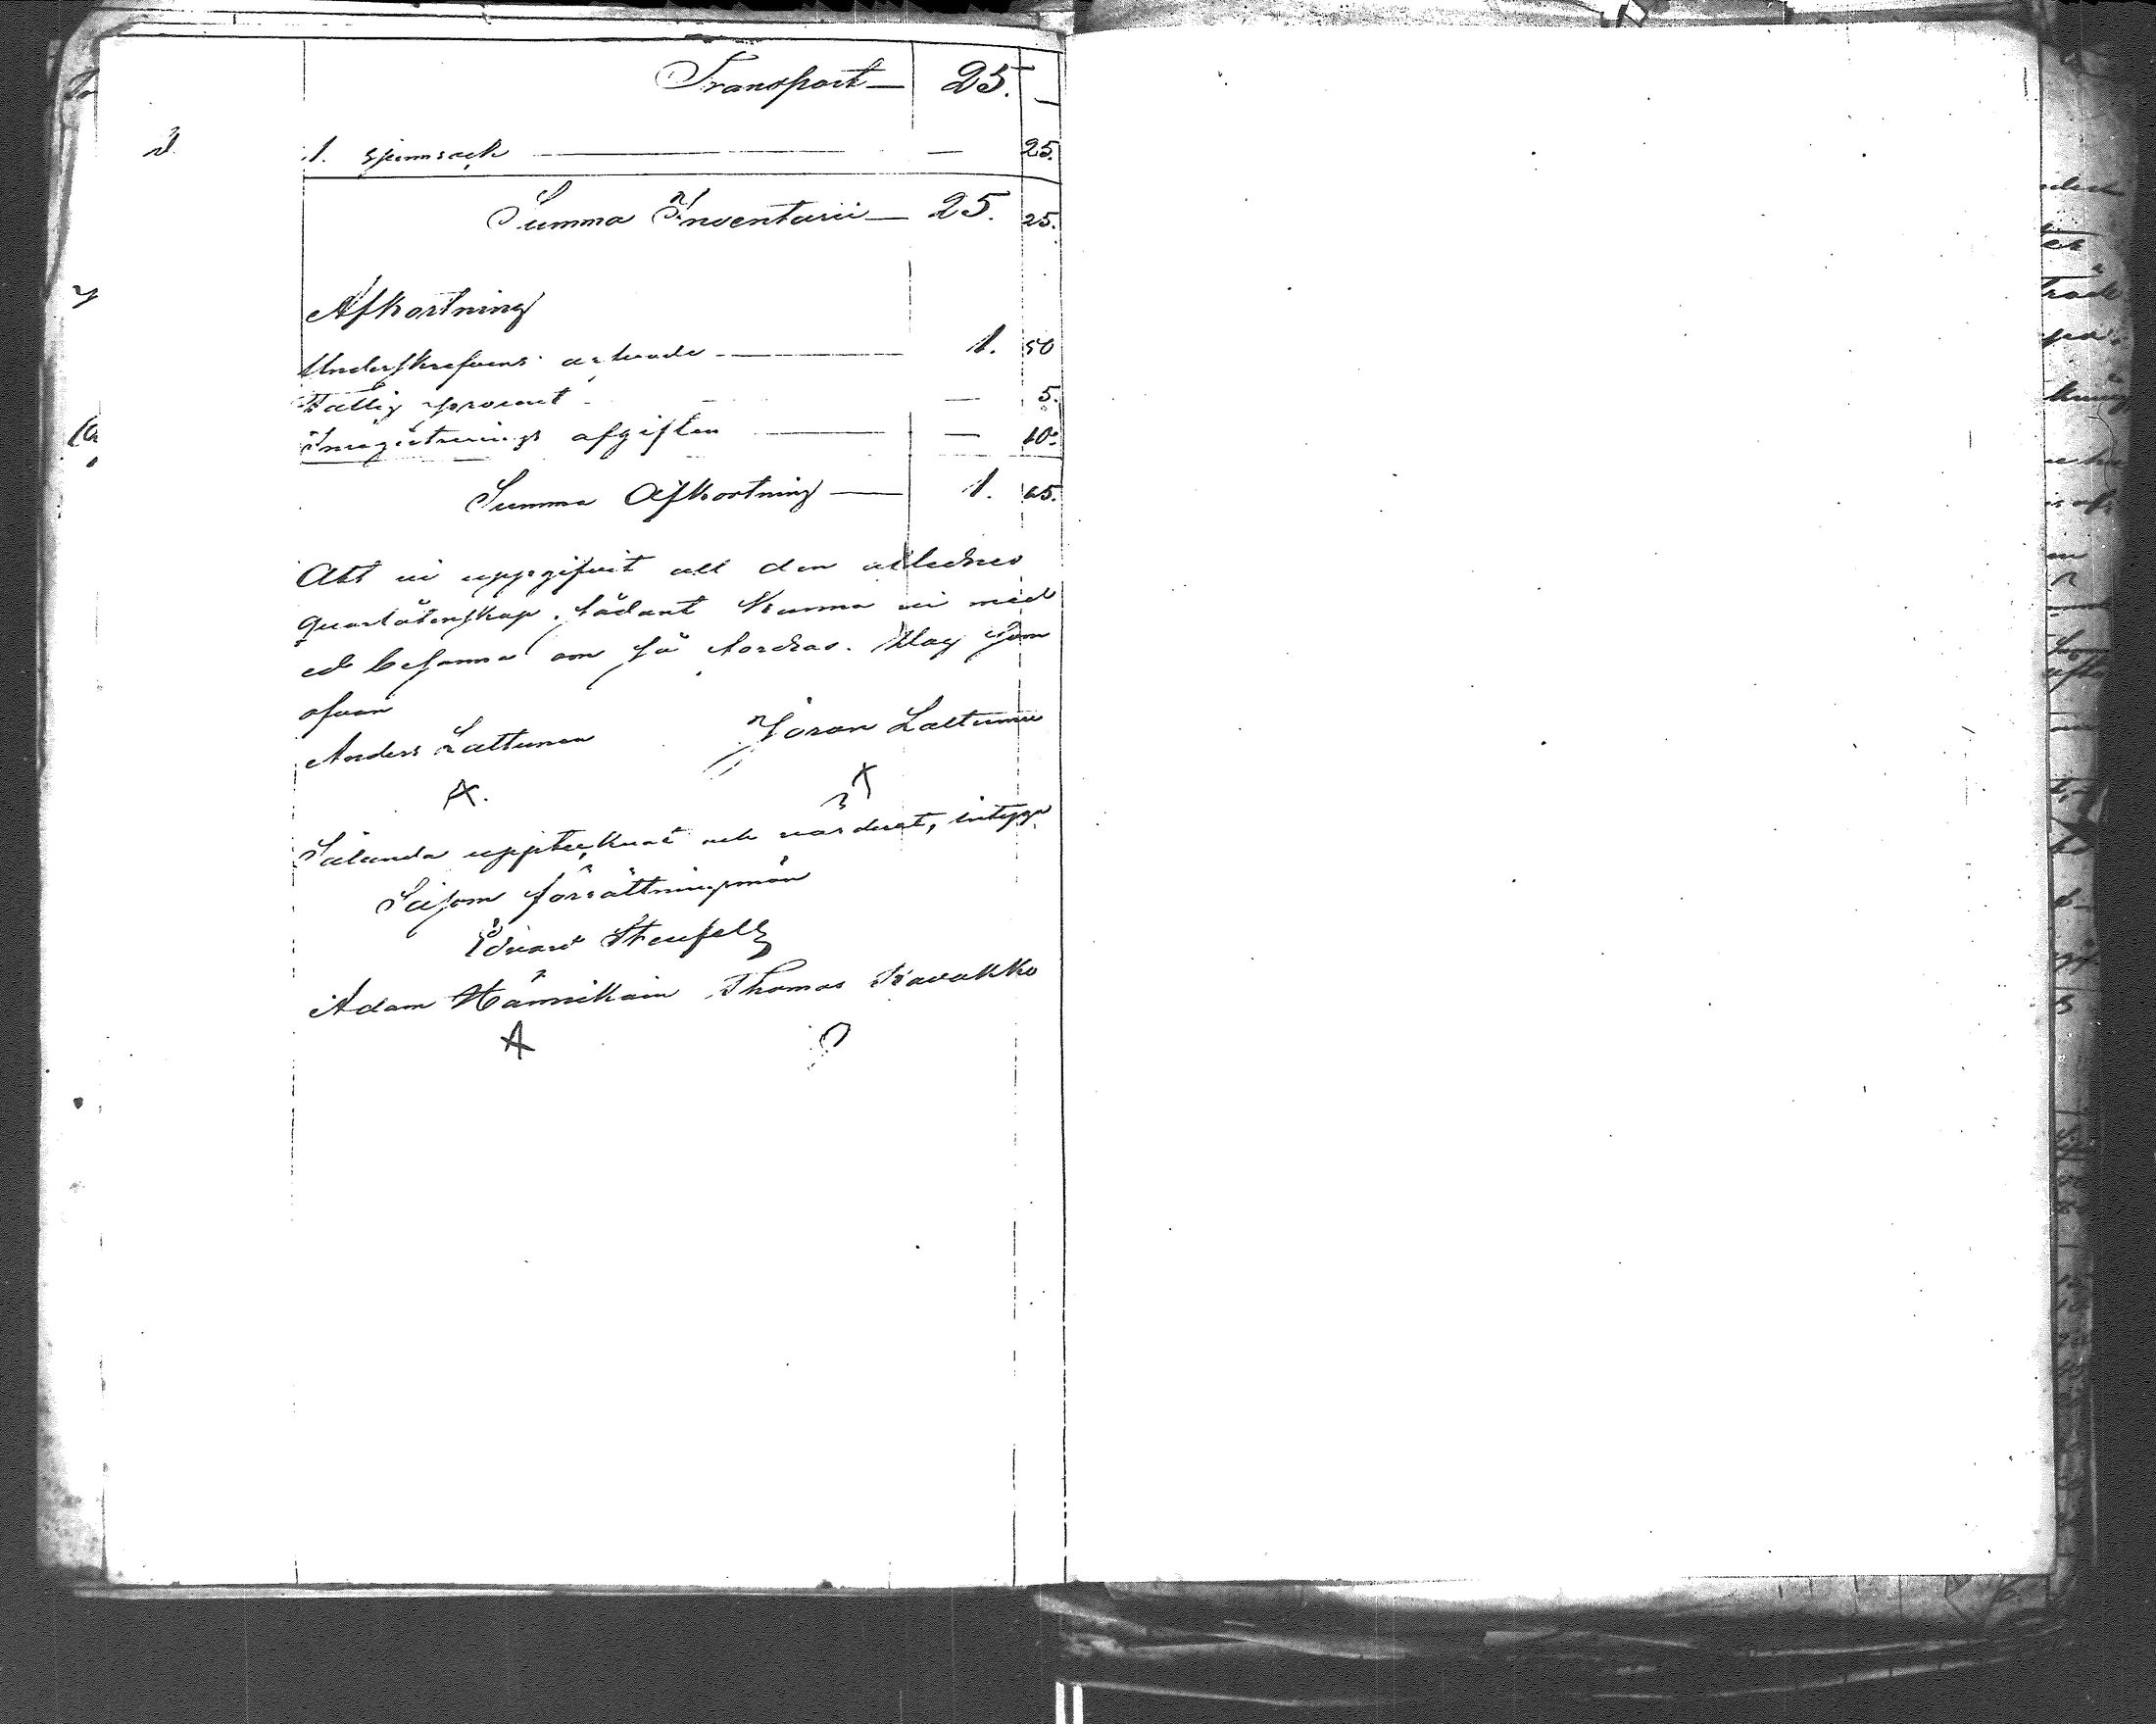 Transport — 25. —
1. spannsäck — — 25.
Summa Inventarii — 25. 25.
Afkortning
Underskrefvens arfvode — 1. 50
Fattig procent — 5.
Inregistrerings afgiften — — 10.
Summa Afkortning — 1. 65.
Att vi uppgifvit all den aflednes
quarlåtenskap, sådant kunna vi med
ed besanna om så fordras. Dag som
ofvan
Anders Lattunen Göran Lattunen
Sålunda upptecknat och värderat, intyga
Såsom förrättningsmän
Edvard Stenfelt
Adam Hännikäin Thomas Kavakko